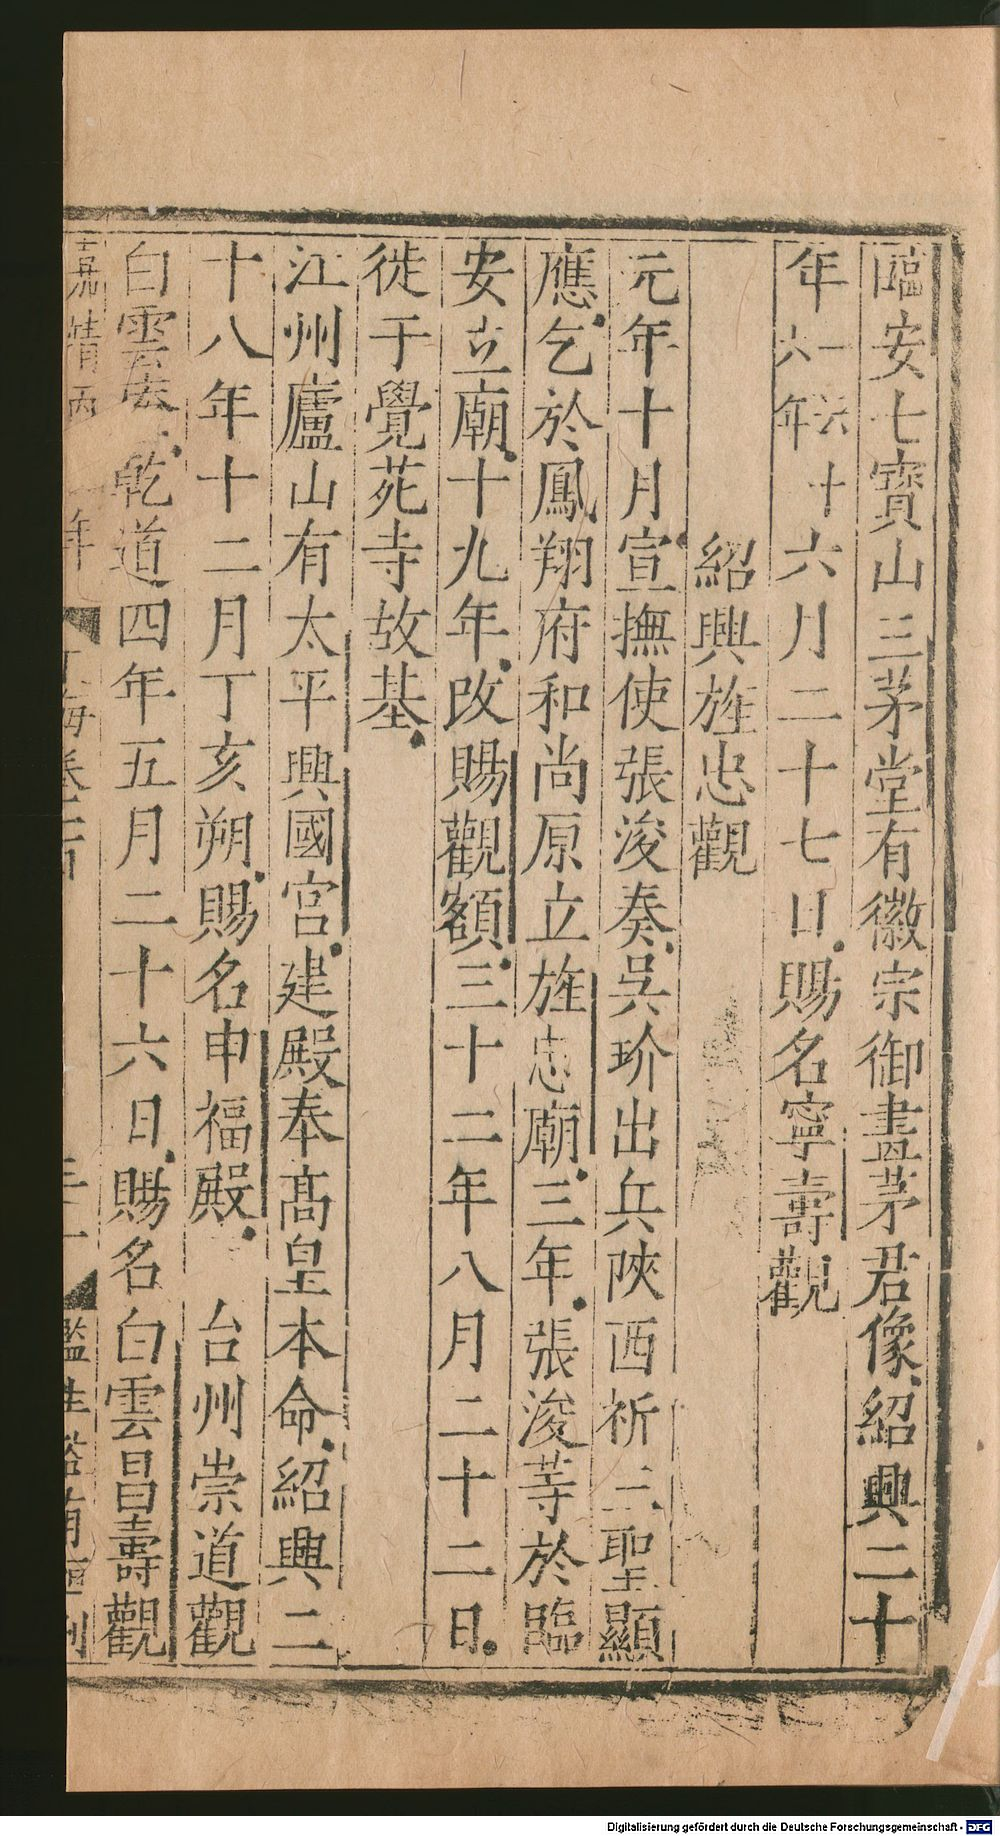 臨安七寶山三茅堂有徽宗御畫茅君像紹興二十
年一六六年十六月二十七日賜名寧壽觀
紹興旌忠觀
元年十月宣撫使張浚奏吳玠出兵陝西祈三聖顯
應乞於鳳翔府和尚原立旌忠廟三年張浚等於臨
安立廟十九年改賜觀額三十二年八月二十二日
徙于覺苑寺故基
江州廬山有太平興國宮建殿奉高皇本命紹興二
十八年十二月丁亥朔賜名申福殿 台州崇道觀
白雲菴乾道四年五月二十六日賜名白雲昌壽觀
年 海卷 監生 刊
Digitalisierung gefördert durch die Deutsche Forschungsgemeinschaft - DFG